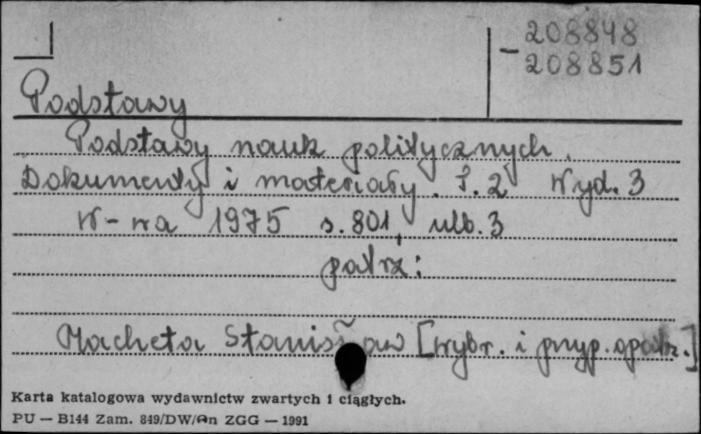 208848
- 208851
Podstawy
Podstawy nauk politycznych.
Dokumenty i materiały. T. 2 Wyd. 3
W-wa 1975 s. 801, ulb. 3
patrz:
Macheta Stanisław [wybr. i przyp. opatrz.]
Karta katalogowa wydawnictw zwartych i ciągłych.
PU — B144 Zam. 849/DW/An ZGG — 1991